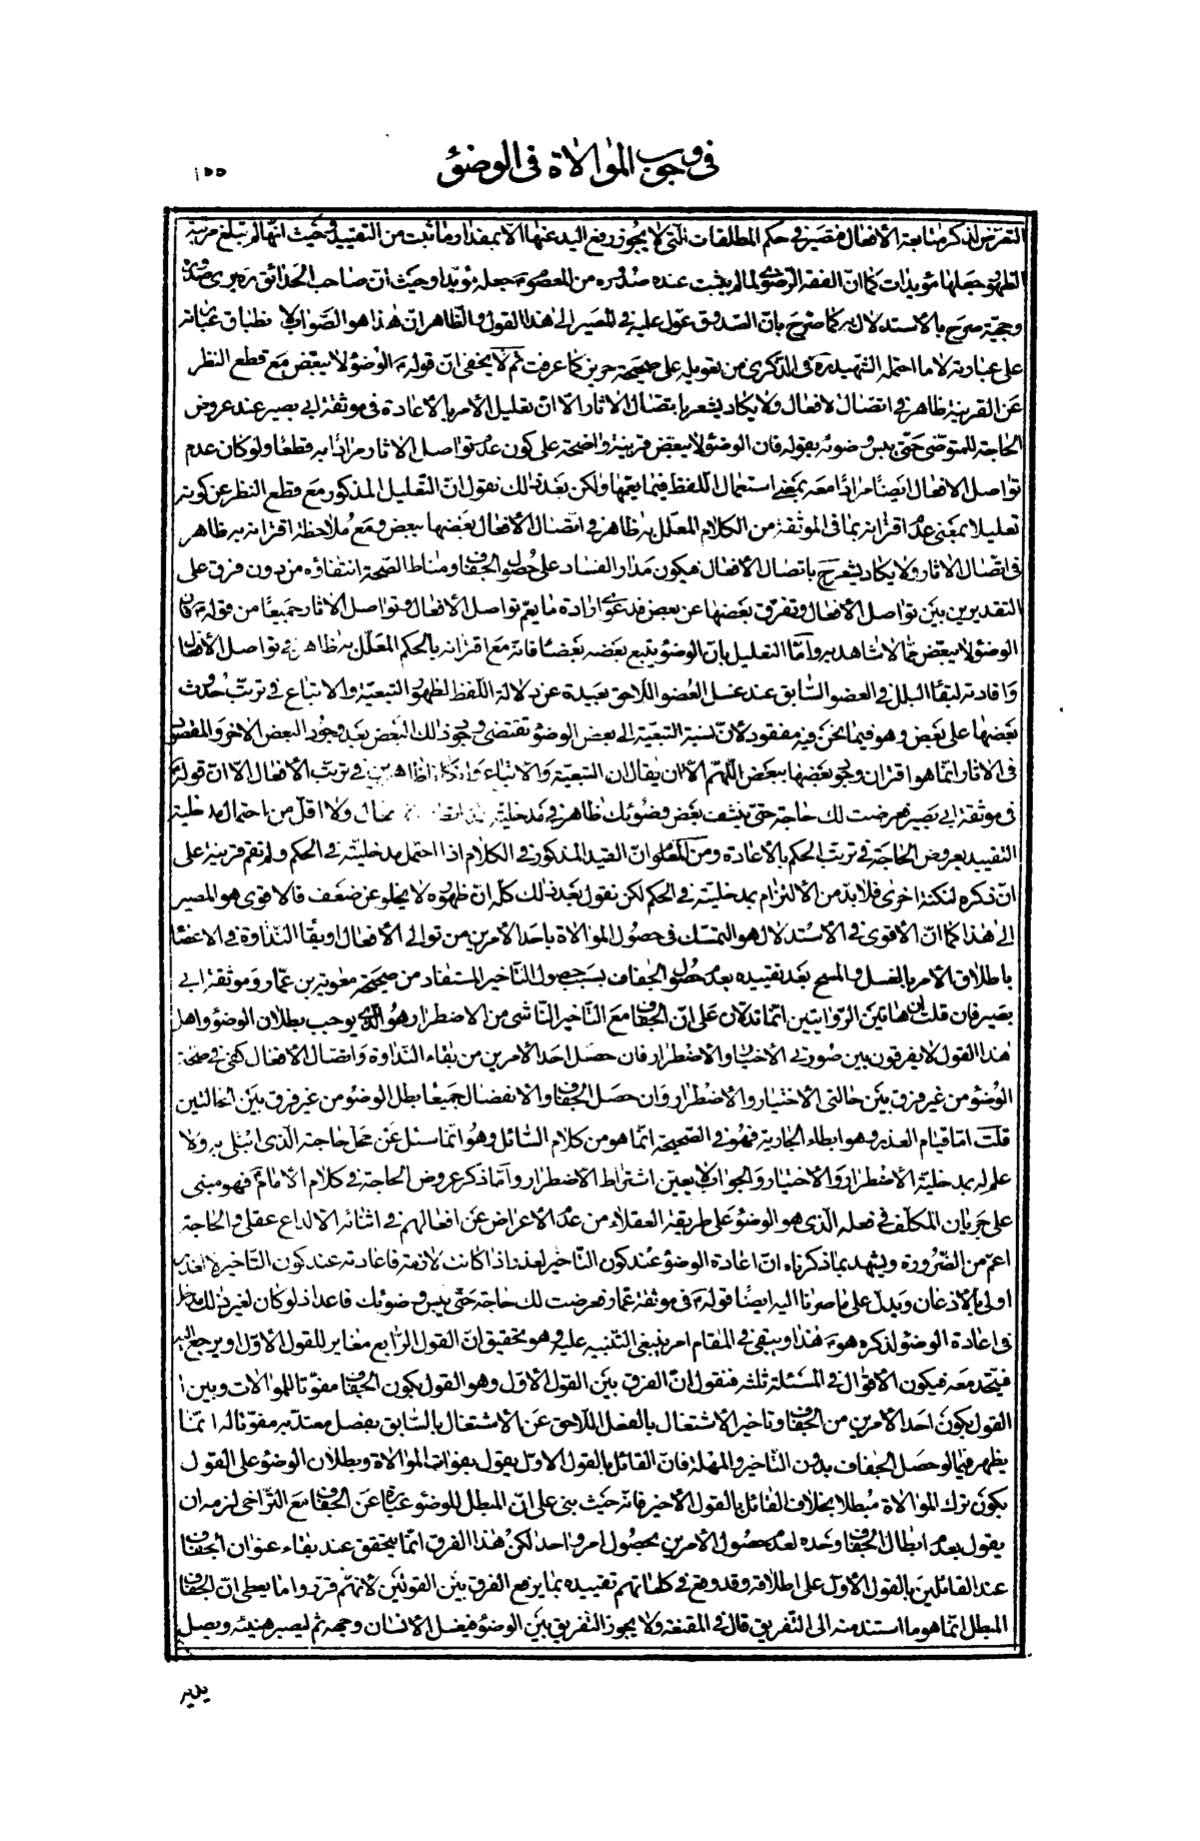 في وجوب الموالاة في الوضوء
١٥٥
التعرض لذكر متابعة الافعال فتصير في حكم المطلقات التي لا يجوز رفع اليد عنها الا بمقدار ما ثبت من التقييد وحيث انها لم تبلغ مرتبة
الظهور جعلها مؤيدات كما ان الفقه الرضوي لما لم يثبت عنده صدوره من المعصوم جعله مؤيدا وحيث ان صاحب الحدائق ره يرى صدوره
وحجيته صرح بالاستدلال به كما صرح بان الصدوق عول عليه في المصير الى هذا القول والظاهر ان هذا هو الصواب لانطباق عبارته
على عبارته لا ما احتمله الشهيد ره في الذكرى من تعويله على صحيحة حريز كما عرفت ثم لا يخفى ان قوله ع الوضوء لا يبعض مع قطع النظر
عن القرينة ظاهر في اتصال الافعال ولا يكاد يشعر باتصال الاثار الا ان تعليل الامر بالاعادة في موثقة ابي بصير عند عروض
الحاجة للمتوضئ حتى يبس وضوئه بقوله فان الوضوء لا يبعض قرينة واضحة على كون عدم تواصل الاثار مرادا به قطعا ولو كان عدم
تواصل الافعال ايضا مرادا معه بمعنى استعمال اللفظ فيما يعمها ولكن بعد ذلك نقول ان التعليل المذكور مع قطع النظر عن كونه
تعليلا بمعنى عدم اقترانه بما في الموثقة من الكلام المعلل به ظاهر في اتصال الافعال بعضها ببعض ومع ملاحظة اقترانه به ظاهر
في اتصال الاثار ولا يكاد يشعر ح باتصال الافعال فيكون مدار الفساد على حصول الجفاف ومناط الصحة انتفاؤه من دون فرق على
التقديرين بين تواصل الافعال وتفرق بعضها عن بعض فدعوى ارادة ما يعم تواصل الافعال وتواصل الاثار جميعا من قوله ع فان
الوضوء لا يبعض مما لا شاهد به واما التعليل بان الوضوء يتبع بعضه بعضا فانه مع اقترانه بالحكم المعلل به ظاهر في تواصل الافعال
وافادته لبقاء البلل في العضو السابق عند غسل العضو اللاحق بعيدة عن دلالة اللفظ لظهور التبعية والاتباع في ترتب حدوث
بعضها على بعض وهو فيما نحن فيه مفقود لان نسبة التبعية الى بعض الوضوء تقتضي وجود ذلك البعض بعد وجود البعض الاخر والمقصود
في الاثار انما هو اقتران وجود بعضها ببعض اللهم الا ان يقال ان التبعية والاتباع وان كانا ظاهرين في ترتب الافعال الا ان قوله ع
في موثقة ابي بصير فعرضت لك حاجة حتى ينشف بعض وضوئك ظاهر في مدخلية ولا اقل من احتمال مدخلية
التقييد بعروض الحاجة في ترتب الحكم بالاعادة ومن المعلوم ان القيد المذكور في الكلام اذا احتمل مدخليته في الحكم ولم تقم قرينة على
ان ذكره لنكتة اخرى فلا بد من الالتزام بمدخليته في الحكم لكن نقول بعد ذلك كله ان ظهوره لا يخلو عن ضعف فالاقوى هو المصير
الى هذا كما ان الاقوى في الاستدلال هو التمسك في حصول الموالاة باحد الامرين من توالي الافعال وبقاء النداوة في الاعضاء
باطلاق الامر بالغسل والمسح بعد تقييده بعدم حصول الجفاف بسبب حصول التاخير المستفاد من صحيحة معوية بن عمار وموثقة ابي
بصير فان قلت ان هاتين الروايتين انما تدلان على ان الجفاف مع التاخير الناشي من الاضطرار هو الذي يوجب بطلان الوضوء واهل
هذا القول لا يفرقون بين صورتي الاختيار والاضطرار فان حصل احد الامرين من بقاء النداوة واتصال الافعال كفى في صحة
الوضوء من غير فرق بين حالتي الاختيار والاضطرار وان حصل الجفاف والانفصال جميعا بطل الوضوء من غير فرق بين الحالتين
قلت اما قيام العذر وهو ابطاء الجارية فهو في الصحيحة انما هو من كلام السائل وهو انما سئل عن محل حاجته الذي ابتلى به ولا
علم له بمدخلية الاضطرار والاختيار والجواب لا يعين اشتراط الاضطرار واما ذكر عروض الحاجة في كلام الامام ع فهو مبنى
على جريان المكلف في فعله الذي هو الوضوء على طريقة العقلاء من عدم الاعراض عن افعالهم في اثنائه الا لداع عقلي والحاجة
اعم من الضرورة ويشهد بما ذكرناه ان اعادة الوضوء عند كون التاخير لعذر اذا كانت لازمة فاعادته عند كون التاخير لا لعذر
اولى بالاذعان ويدل على ما صرنا اليه ايضا قوله ع في موثقة عمار فعرضت لك حاجة حتى يبس وضوئك فاعد اذ لو كان لغير ذلك مدخل
في اعادة الوضوء لذكره هو ع هذا ويبقى في المقام امر ينبغي التنبيه عليه وهو تحقيق ان القول الرابع مغاير للقول الاول او يرجع اليه
فيتحد معه فيكون الاقوال في المسئلة ثلثة فنقول ان الفرق بين القول الاول وهو القول بكون الجفاف مفوتا للموالات وبين
القول بكون احد الامرين من الجفاف وتاخير الاشتغال بالفعل اللاحق عن الاشتغال بالسابق بفصل معتد به مفوتا له انما
يظهر فيما لو حصل الجفاف بدون التاخير والمهلة فان القائل بالقول الاول يقول بفوات الموالاة وبطلان الوضوء على القول
بكون ترك الموالاة مبطلا بخلاف القائل بالقول الاخير فانه حيث بنى على ان المبطل للوضوء عبارة عن الجفاف مع التراخي لزمه ان
يقول بعدم ابطال الجفاف وحده لعدم حصول الامرين بحصول امر واحد لكن هذا الفرق انما يتحقق عند بقاء عنوان الجفاف
عند القائلين بالقول الاول على اطلاقه وقد وقع في كلماتهم تقييده بما يرفع الفرق بين القولين لانهم قرروا ما يعطى ان الجفاف
المبطل انما هو ما استند منه الى التفريق قال في المقنعة ولا يجوز التفريق بين الوضوء فيغسل الانسان وجهه ثم ليصبر هنيئة ويصل
يديه